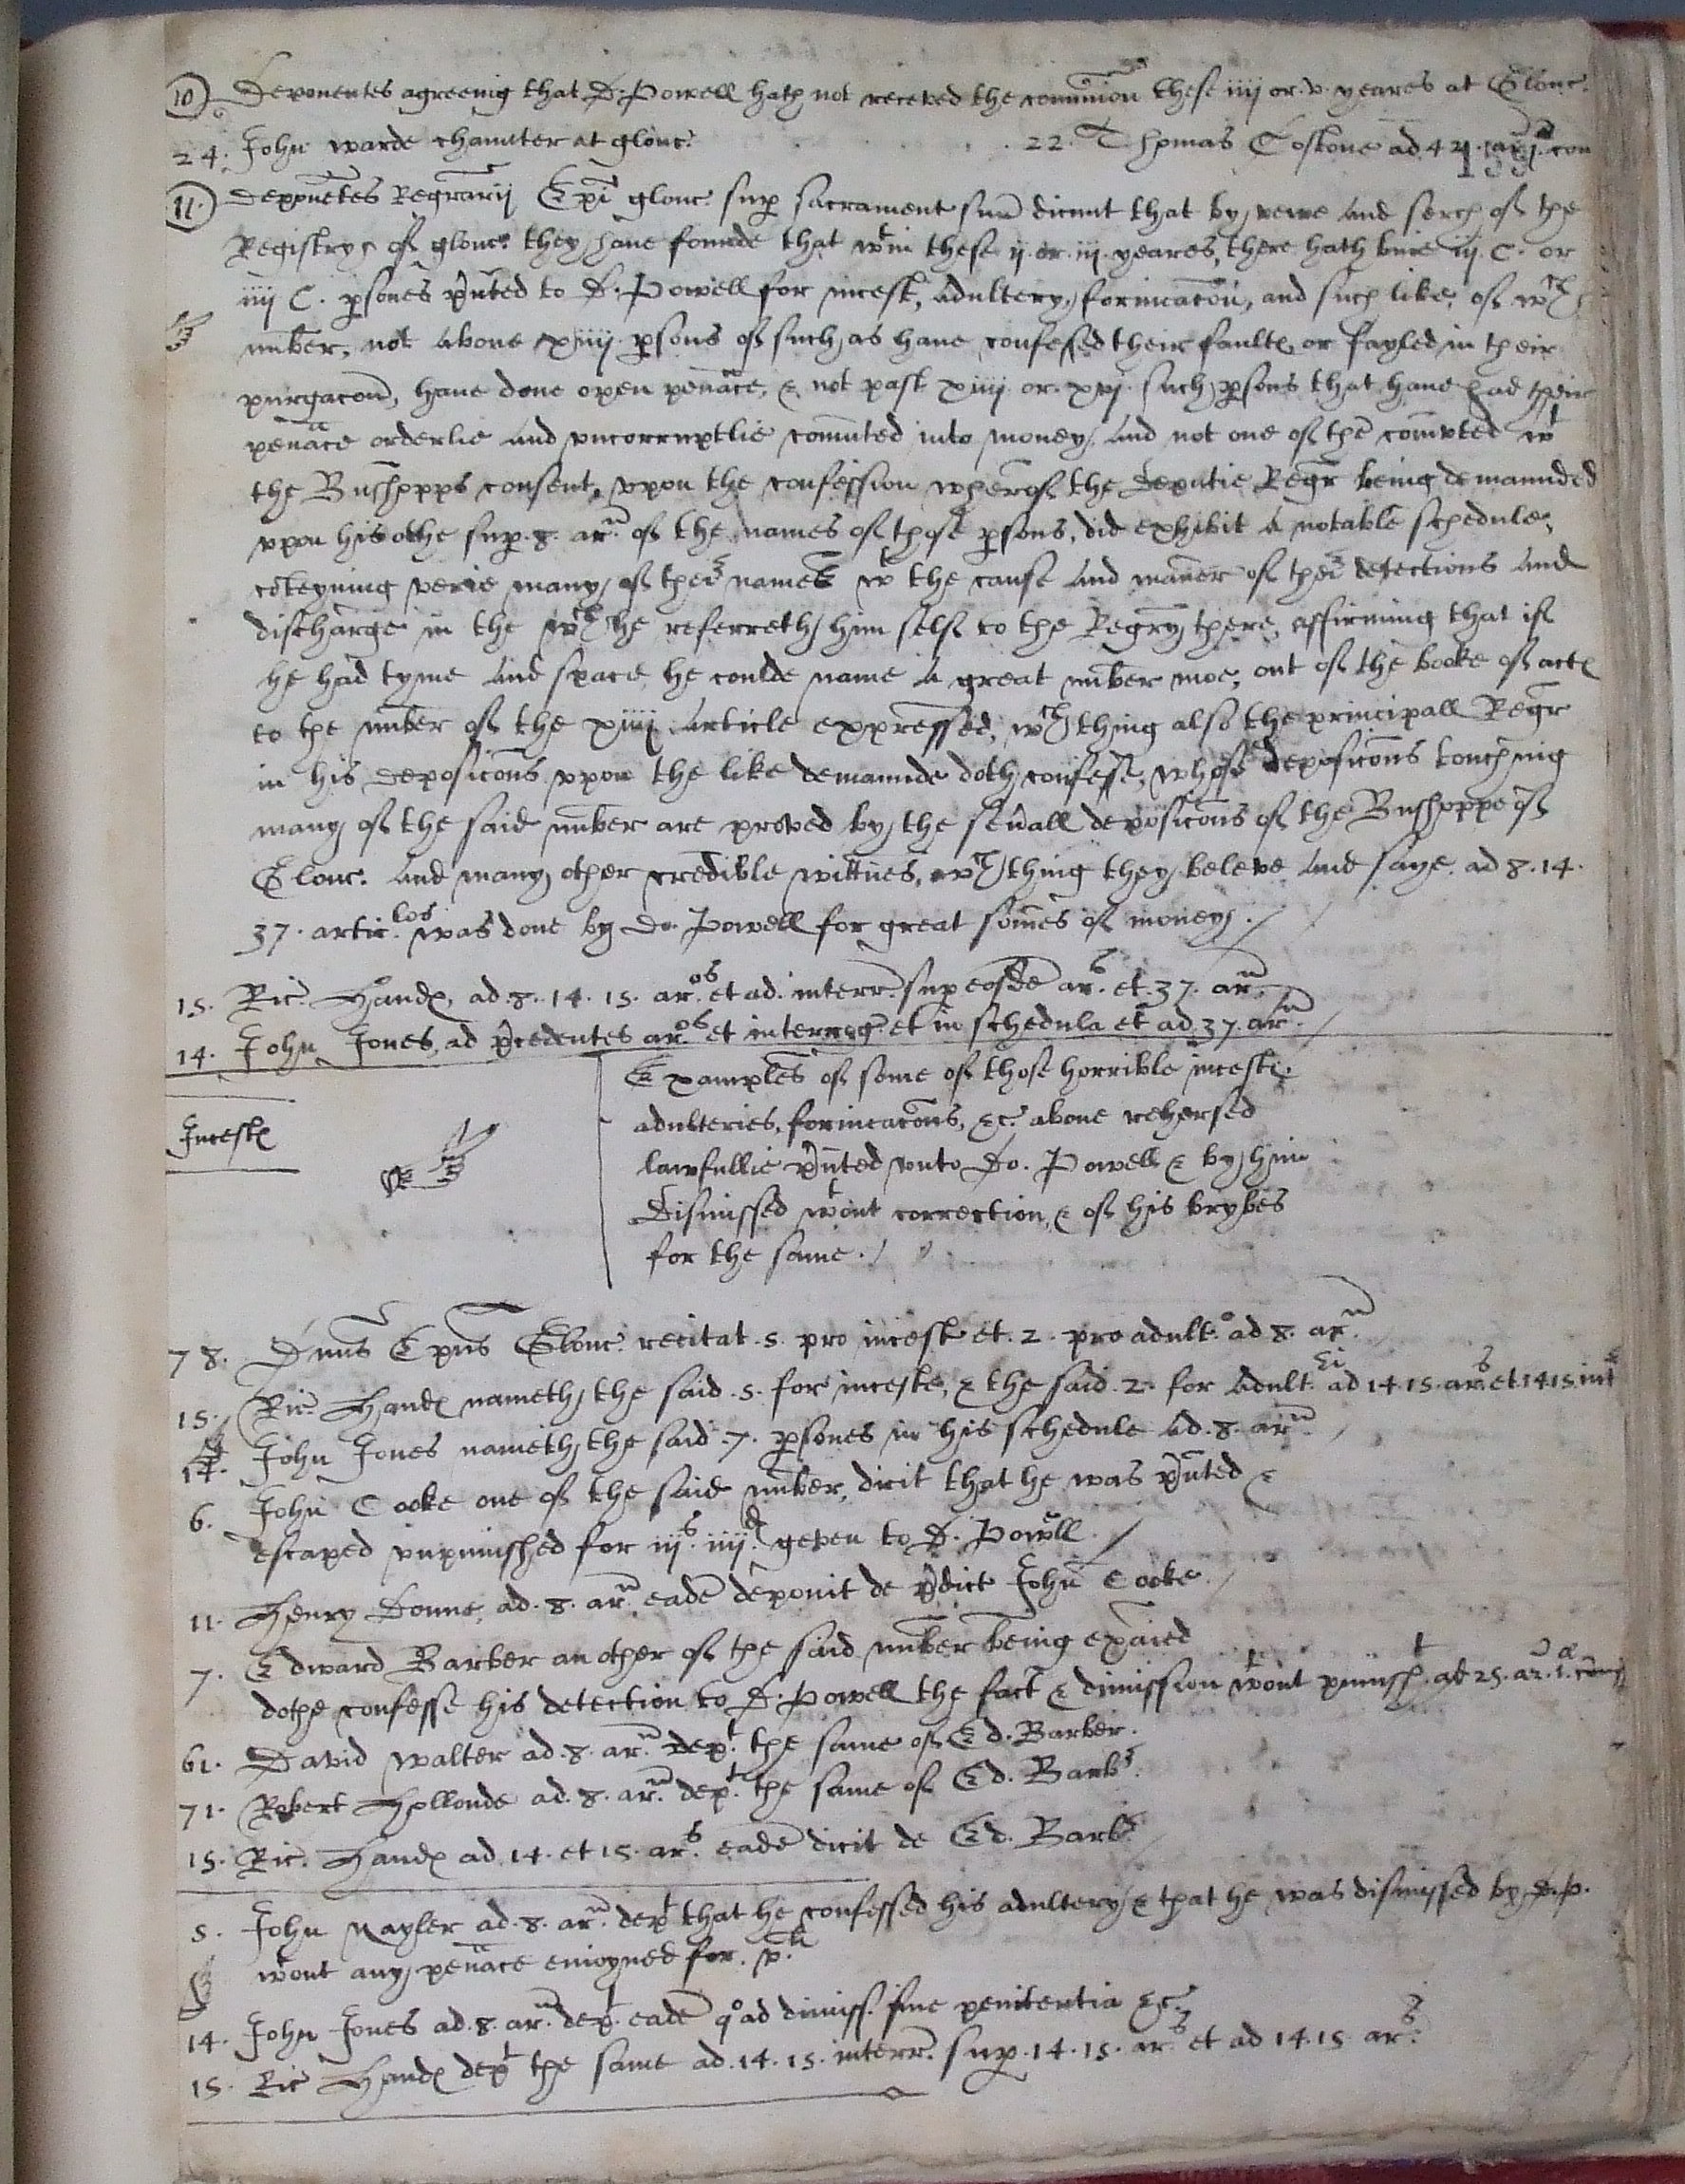 10 Deponentes agreeing that D: Powell hath not receved the com̄union these iiij or v yeares at Glouc.
24. John warde chaunter at glouc. 22. Thomas Coston ad 42. arm.
11. deponētes Regrarij Epi glouc. sup sacrament suū dicunt that by vewe and serch of the
Registrye of glouc. they have founde that wtin these ij or iij yeares, there hath bene iij C. or
iiij C. psones pñted to D: Powell for incest, Adultery, fornicacōn, and such like, of wch
nūber, not above xiiij psons of such as have confessed their faultes or fayled in their
purgacoū, have done open penāce, & not past xiiij or xvj such psons that have had their
penāce orderlie and uncorruptlie com̄uted into money, And not one of thē com̄uted wt
the Bushopps consent, upon the confession wherof the deputie Regr being demaunded
upon his othe sup 8. arm. of the names of those psons, did exhibit a notable schedule,
cōteyning verie many of their names wt the cause and maner of their detections and
discharge in the wch he referreth him self to the Regry there, affirming that if
he had tyme and space he coulde name a great nūber moe, out of the booke of actes
to the nūber of the xiiij Article expressed, wch thing also the principall Regr
in his deposicōns upon the like demaunde doth confesse, whose deposicōns touching
many of the said nūber are proved by the sev̄all deposicōns of the Bushoppe of
Glouc. And many other credible wittnes, wch thing they beleve and saye ad 8. 14.
37. articlos was done by Do. Powell for great som̄es of money./
15. Ric. Handes, ad 8. 14. 15. aros. et ad interr. sup eosdē ars. et 37. arm.
14. John Jones, ad p̄cedentes aros. et interrog. et in schedula et ad 37. arm./
Incestes
Examples of some of those horrible incestes
adulteries, fornicacōns, &c. above rehersed
lawfullie pñted unto Do. Powell & by him
Dismissed wtout correction, & of his brybes
for the same./
78. Dnūs Epūs Glouc. recitat 5. pro incest et 2. pro adult.o ad 8. arm.
15. Ric. Handes nameth the said 5. for inceste, & the said 2. for Adult. ad 14. 15. ars. et 14 15 int
14. John Jones nameth the said 7. psones in his schedule ad 8. arm./
6. John Cooke one of the said nūber, dicit that he was pñted &
escaped unpunished for iijs. iiijd. geven to D. Powell./
11. Henry Donne, ad 8. arm. eadē deponit de p̄dict John Cooke./
7. Edward Barber an other of the said nūber being exaīed
dothe confesse his detection to D. Powell the fact & dimission wtout punisht. ad 25. ar.
61. David Walter ad 8. arm. dept. the same of Ed. Barber.
71. Robert Hollonde ad 8. arm. dept. the same of Ed. Barbr.
15. Ric. Handes ad 14. et 15. ars. eadē dicit de Ed. Barbr.
5. John Nayler ad 8. arm. dept that he confessed his adultery & that he was dismissed by D. P.
wtout any penāce enioyned for vli
14. John Jones ad 8. arm. dept. eadē qoad dimiss. sine penitentia &c.
15. Ric Handes dept the same ad 14. 15. interr. sup 14. 15. ars et ad 14. 15 ars.